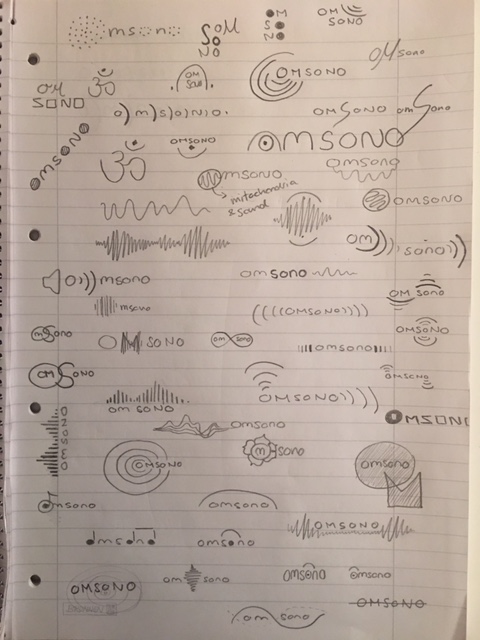 omsono
SOM
SO
NO
OM
SO
NO
OM
SONO
OM sono
OM
SONO
ॐ
OM
SONO
OMSONO
o)m)s)o)n)o.
OMSONO
om Sono
OMSONO
OMSONO
OMSONO
ॐ
OMSONO
omsono
mitochondria
& sound
OMSONO
om))) sono)))
o)))msono
om sono
OM sono
msono
((((OMSONO))))
omSono
OM SONO
om sono
omsono
OMSONO
OM SONO
OMSONO))))
OMSONO
OM SONO
OMSONO
OMSONO
omsono
OMSONO
m sono
omsono
omsono
omsono
OMSONO
omsono
omsono
OMSONO
om sono
omsono
omsono
OMSONO
om sono